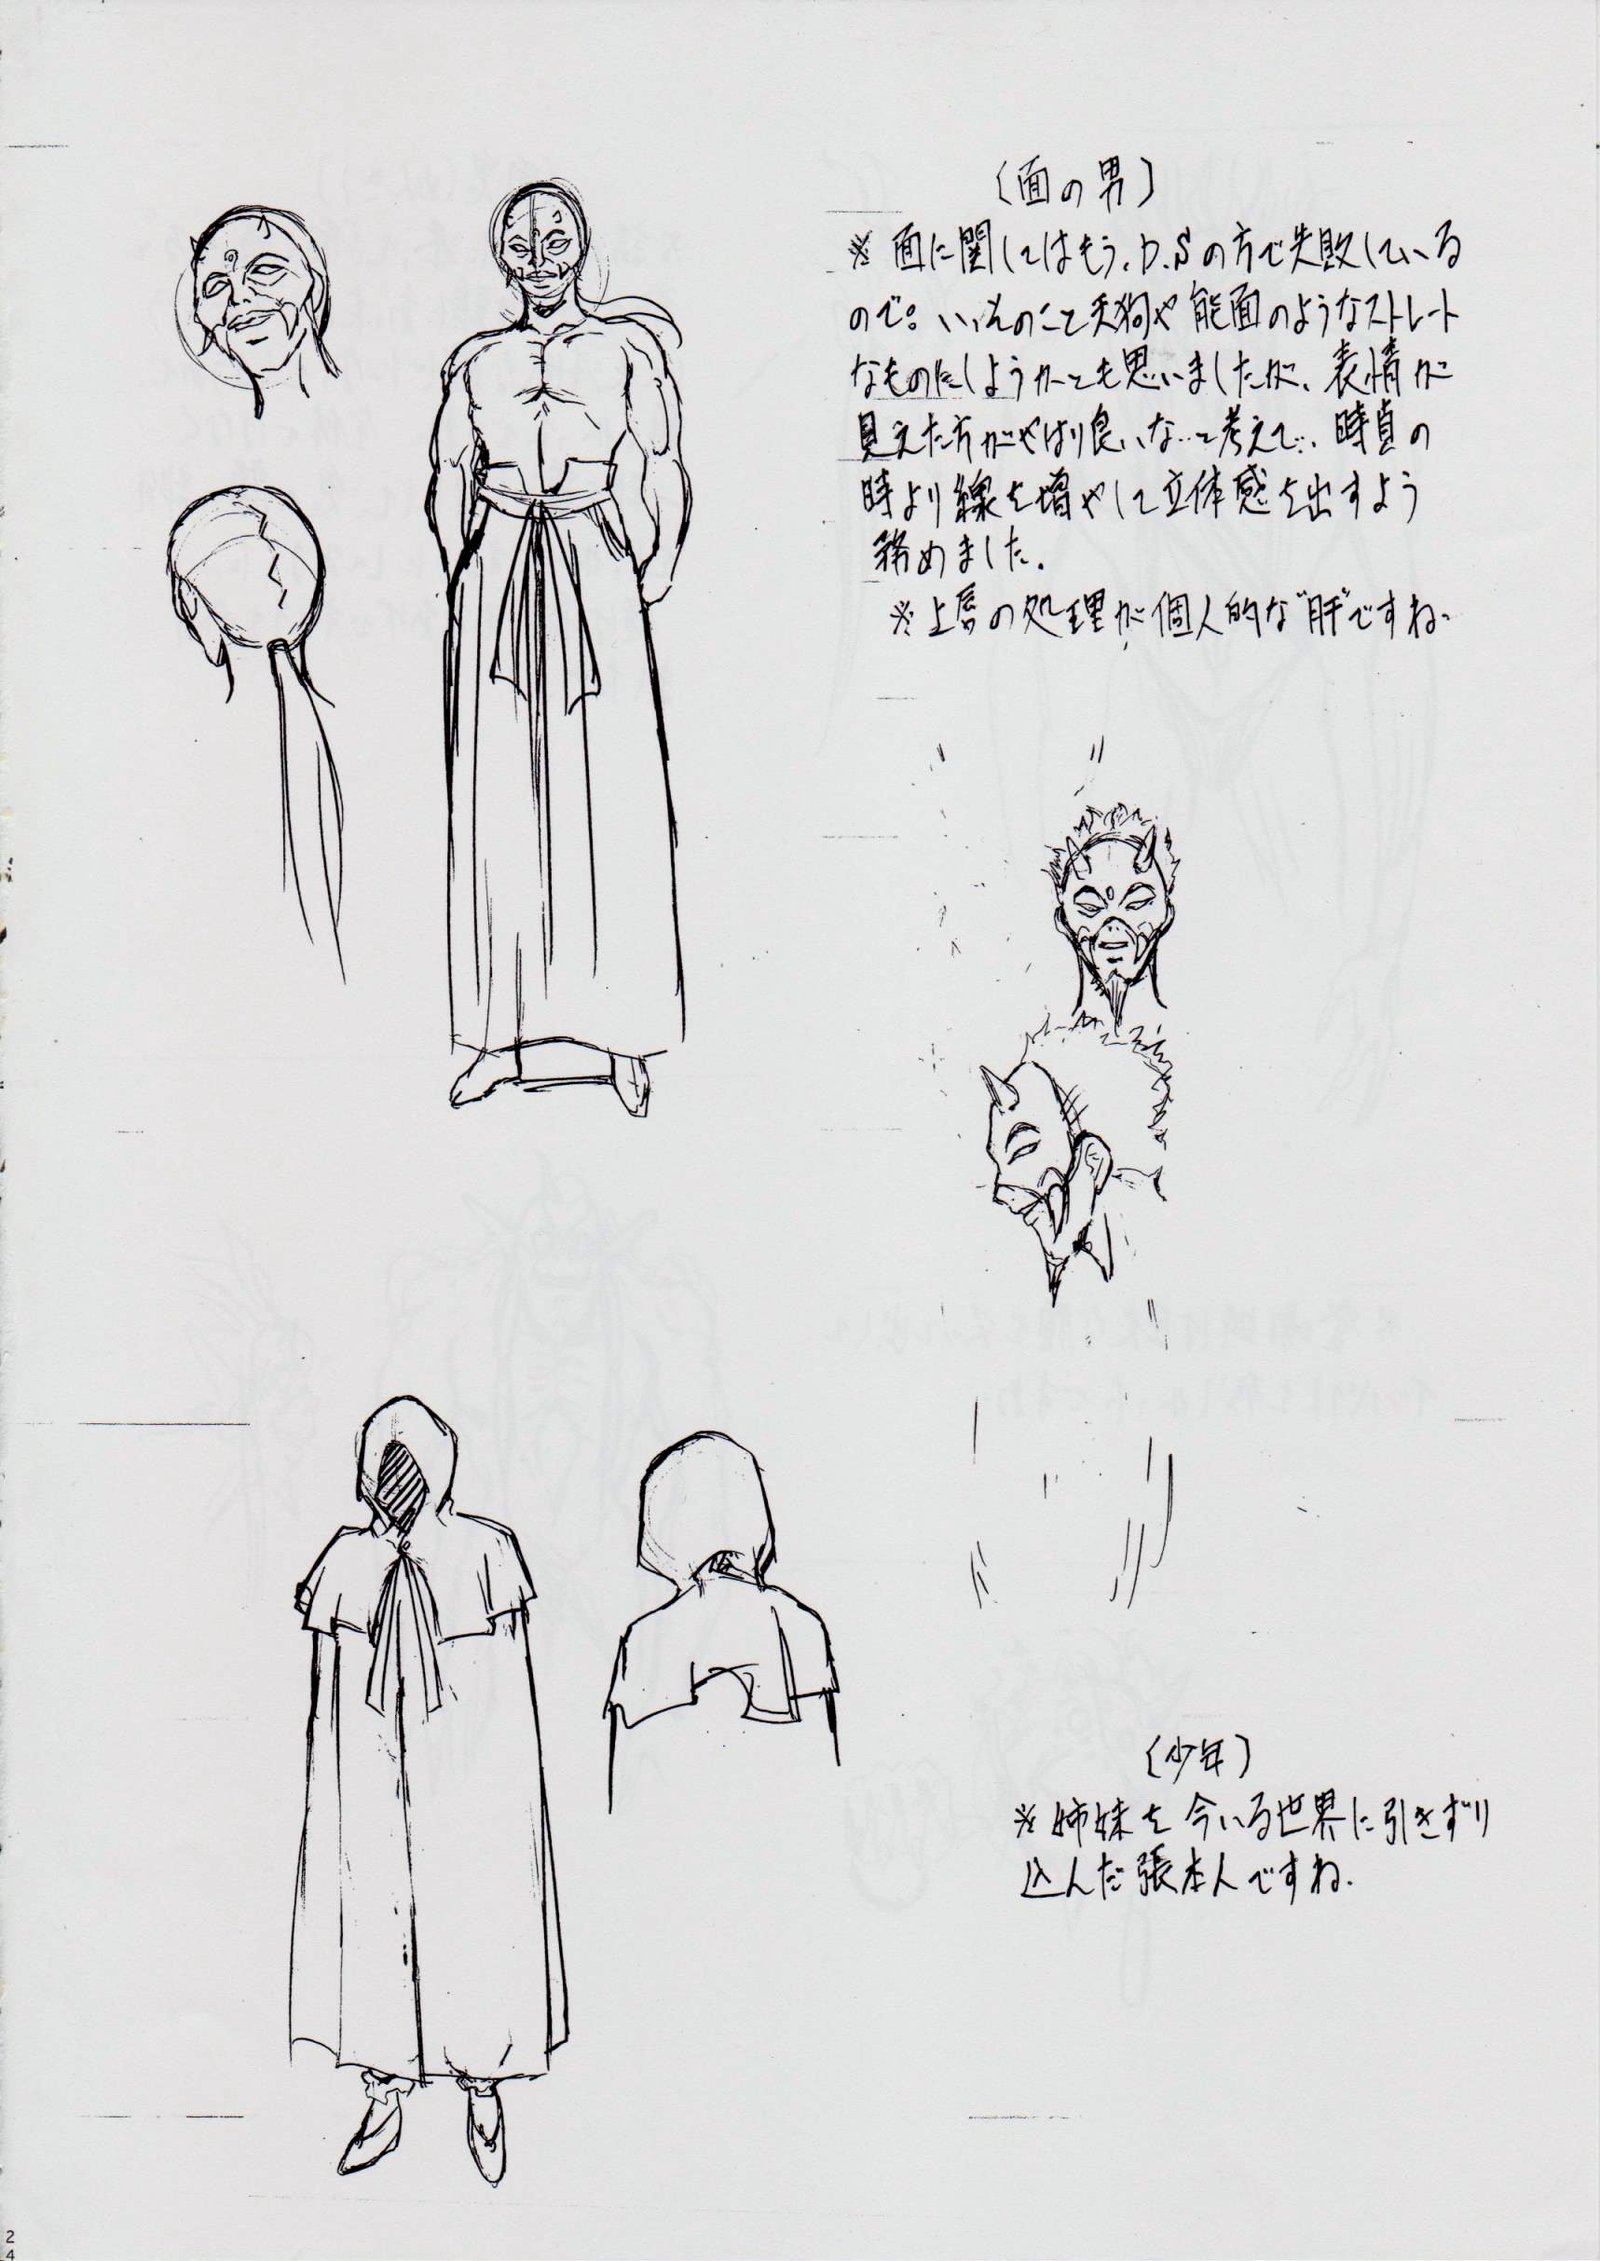 （面の男）
※ 面に関してはもう、D.Sの方で失敗している
ので。いっそのこと天狗や能面のようなストレート
なものにしようかとも思いましたが、表情が
見えた方がやはり良いな…と考えて…、時貞の
時より線を増やして立体感を出すよう
務めました。
※上唇の処理が個人的な“肝”ですね。
（少年）
※姉妹を今いる世界に引きずり
込んだ張本人ですね。
24